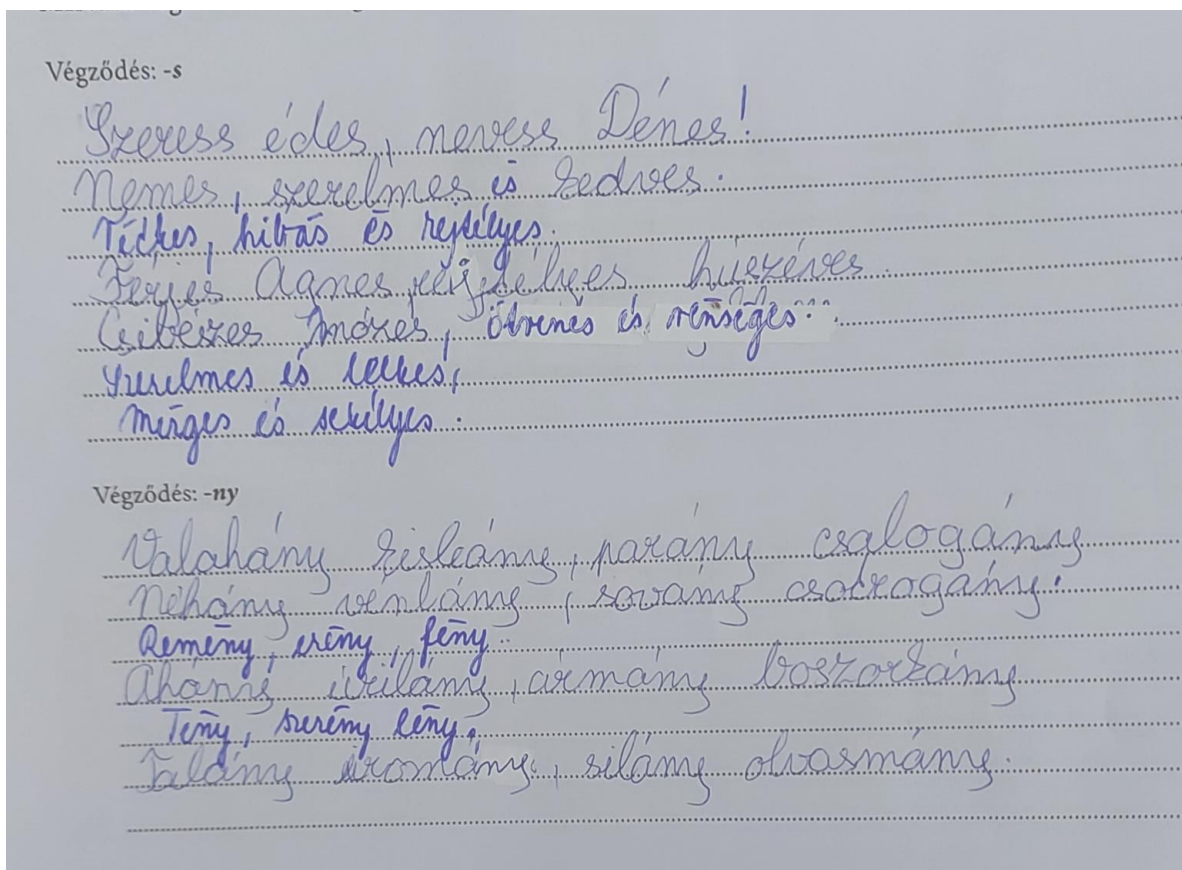 Végződés: -s
Szeress édes, nevess Dénes!
Nemes, szerelmes és kedves.
Tédkes, hibás és rejtélyes.
Férjes Ágnes, rejtélyes húszéves.
Csibészes Mózes, ötvenés és renséges...
Szerelmes és lelkes,
Mérges és sekélyes.
Végződés: -ny
Valahány kisleány, parány csalogány
Néhány vénlány, sovány csotrogány.
Remény, erény, fény.
Ahány úrilány, ármány boszorkány
Tény, szerény lény,
Talány iromány, silány olvasmány.